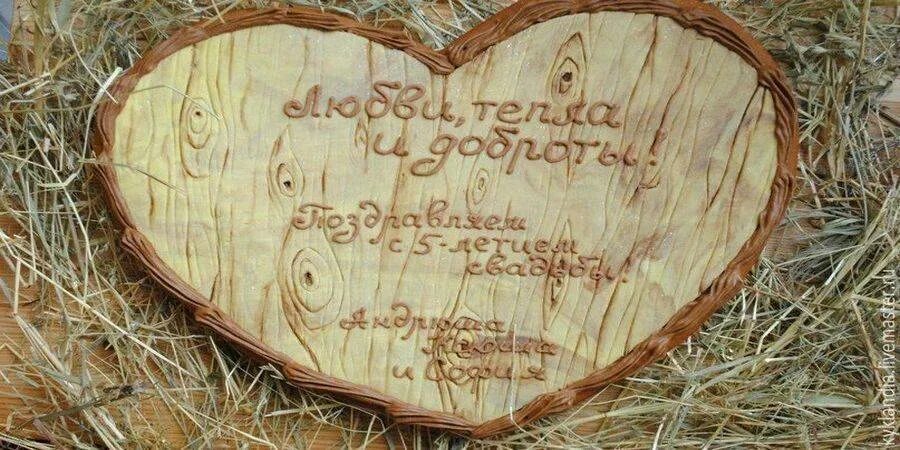 Любви, тепла
и доброты!
Поздравляем
с 5-летием
свадьбы!
Андрюша
и София
kyklandia.livemaster.ru